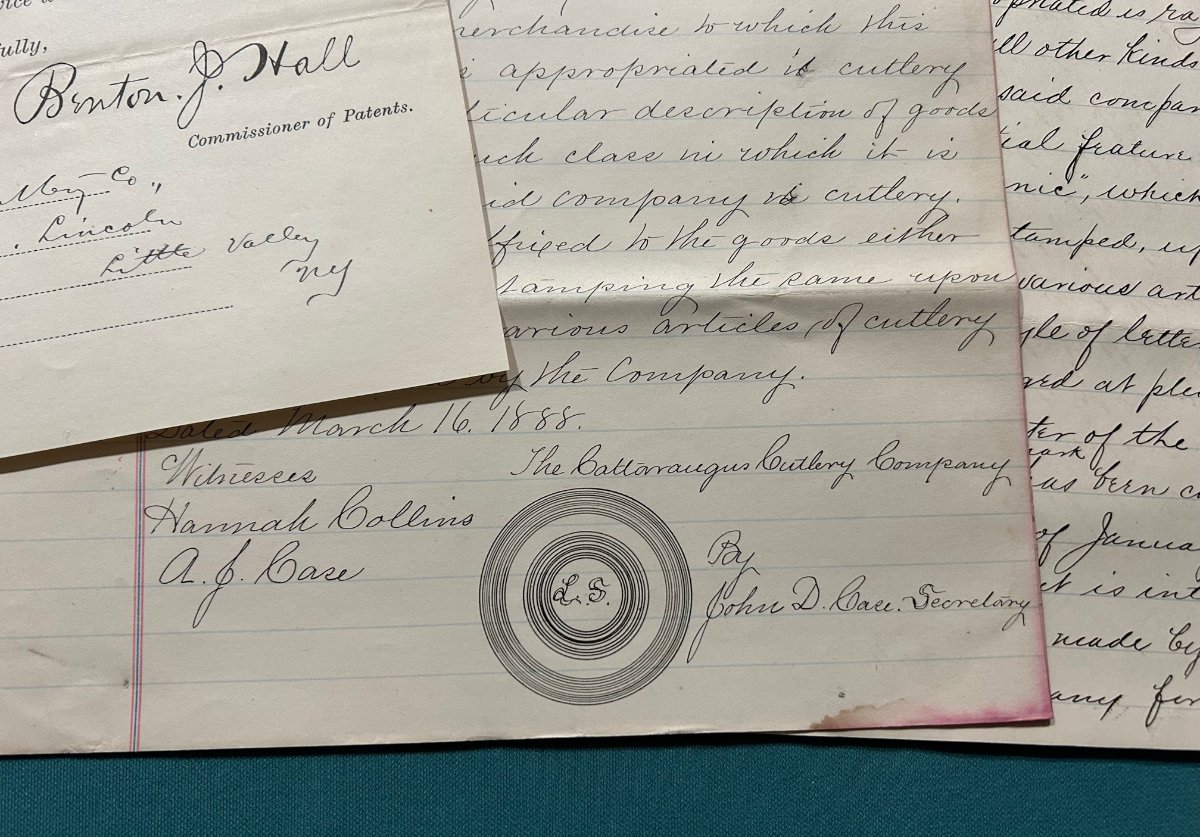 fully,
Benton. J. Hall
Commissioner of Patents.
Mfg Co.,
. Lincoln
Little Valley
NY
merchandise to which this
appropriated is cutlery
ticular description of goods
ch class in which it is
id company is cutlery.
ffixed to the goods either
tamping the same upon
arious articles of cutlery
by the Company.
Dated March 16. 1888.
Witnesses
Hannah Collins
A. J. Case
The Cattaraugus Cutlery Company
L. S.
By
John D. Case. Secretary
opriated is
ll other kinds
said compan
ial feature
nic", which
tamped, up
various art
yle of lette
ged at ple
ter of the
mark
has been
of Janua
t is int
made by
any for